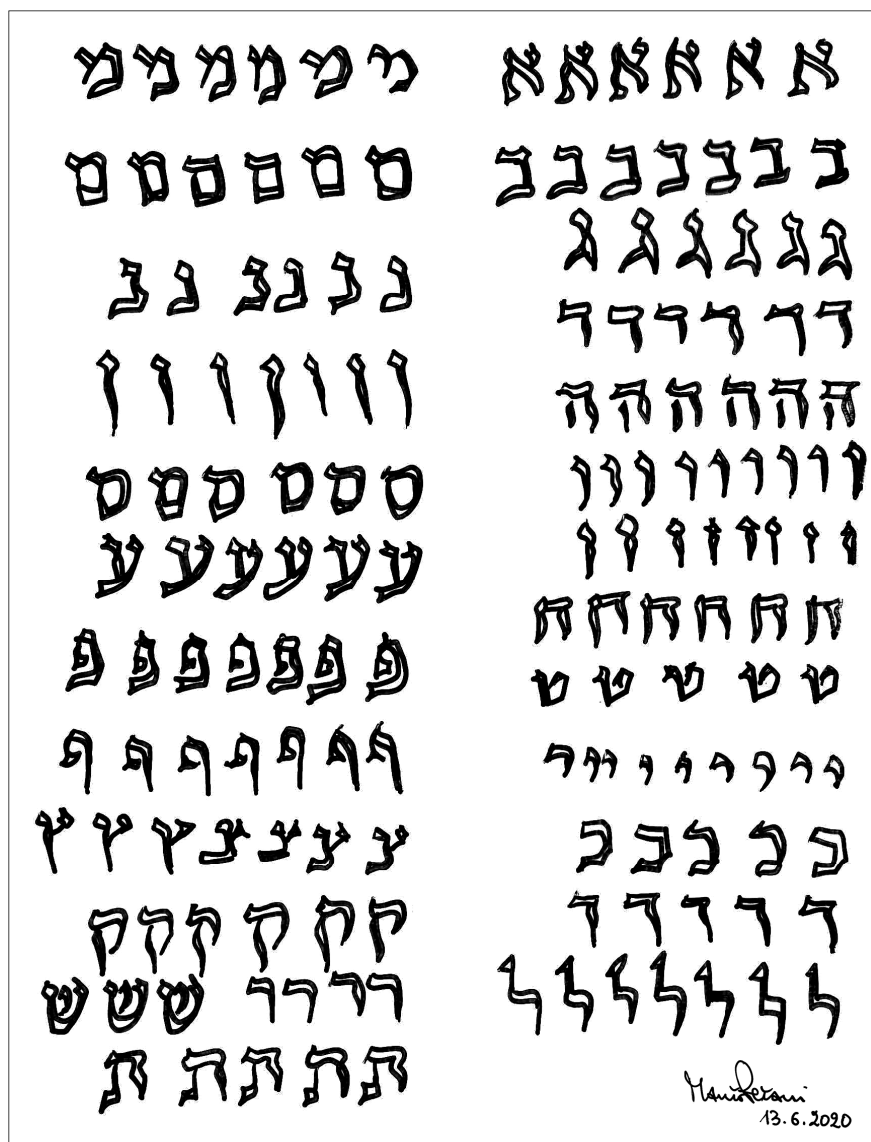 א א א א א א
ב ב ב ב ב ב ב
ג ג ג ג ג ג
ד ד ד ד ד ד
ה ה ה ה ה ה
ו ו ו ו ו ו ו ו ו
ז ז ז ז ז ז ז ז
ח ח ח ח ח ח
ט ט ט ט ט
י י י י י י י י י
כ כ כ כ כ
ך ך ך ך ך
ל ל ל ל ל ל ל
מ מ מ מ מ מ
ם ם ם ם ם ם
נ נ נ נ נ נ
ן ן ן ן ן ן ן
ס ס ס ס ס ס
ע ע ע ע ע ע
פ פ פ פ פ פ פ
ף ף ף ף ף ף ף
צ צ צ צ ץ ץ ץ
ק ק ק ק ק ק
ר ר ר ר ש ש ש
ת ת ת ת ת
Mauro Perani
13.6.2020